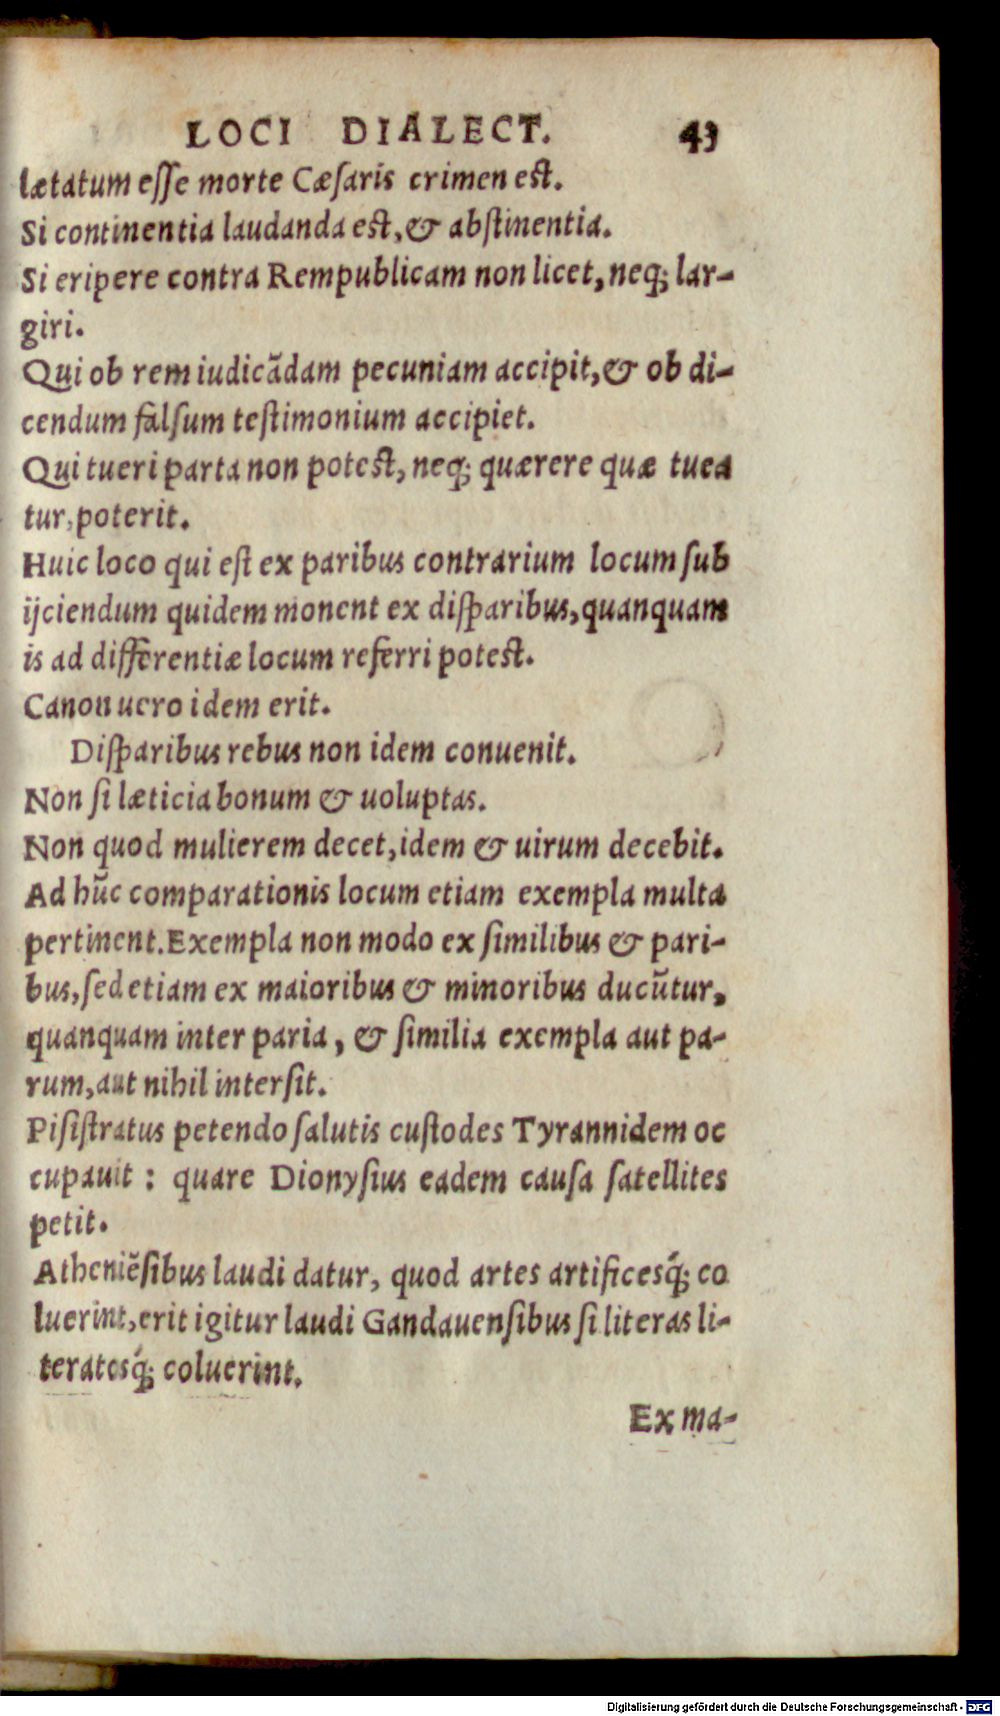 LOCI DIALECT. 43
lætatum esse morte Cæsaris crimen est.
Si continentia laudanda est, & abstinentia.
Si eripere contra Rempublicam non licet, neq; lar-
giri.
Qui ob rem iudicãdam pecuniam accipit, & ob di-
cendum falsum testimonium accipiet.
Qui tueri parta non potest, neq; quærere quæ tuea
tur, poterit.
Huic loco qui est ex paribus contrarium locum sub
ijciendum quidem monent ex disparibus, quanquam
is ad differentiæ locum referri potest.
Canon uero idem erit.
Disparibus rebus non idem conuenit.
Non si læticia bonum & uoluptas.
Non quod mulierem decet, idem & uirum decebit.
Ad hũc comparationis locum etiam exempla multa
pertinent. Exempla non modo ex similibus & pari-
bus, sed etiam ex maioribus & minoribus ducũtur,
quanquam inter paria, & similia exempla aut pa-
rum, aut nihil intersit.
Pisistratus petendo salutis custodes Tyrannidem oc
cupauit : quare Dionysius eadem causa satellites
petit.
Atheniẽsibus laudi datur, quod artes artificesq́; co
luerint, erit igitur laudi Gandauensibus si literas li-
teratosq́; coluerint.
Ex ma-
Digitalisierung gefördert durch die Deutsche Forschungsgemeinschaft - DFG